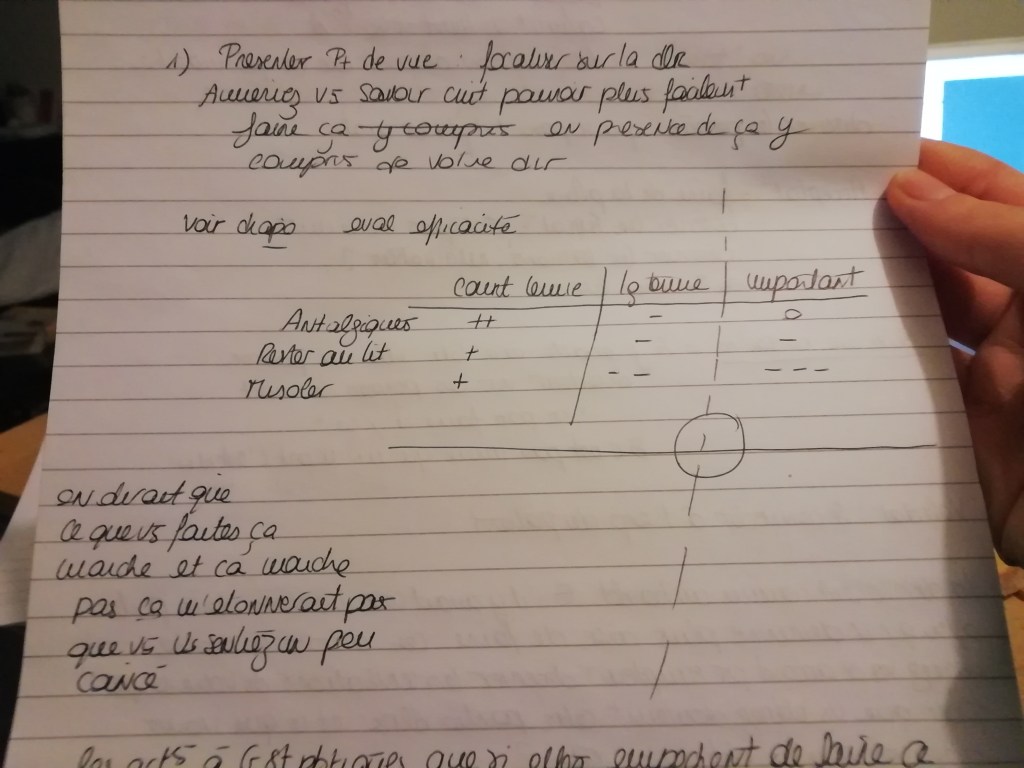 1) Presenter Pt de vue : focaliser sur la dlr
Aimeriez vs savoir cmt pouvoir plus facilemt
faire ça y compris en présence de ça y
compris de votre dlr
voir chapo eval efficacité
court terme | lg terme | important
Antalgiques ++ - 0
Rester au lit + - -
M'isoler + -- ---
on dirait que
ce que vs faites ça
marche et ça marche
pas ça m'étonnerait pas
que vs vs sentiez un peu
coincé
à que si elles empêchent de faire ce